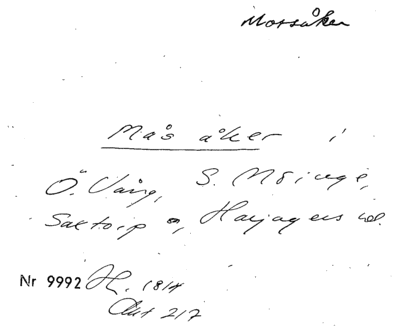 Mossåker
Mås åker i
Ö. Vång, S. Möinge,
Saxtorp s, Harjagers hd.
Nr 9992 H. 1814
Akt 217